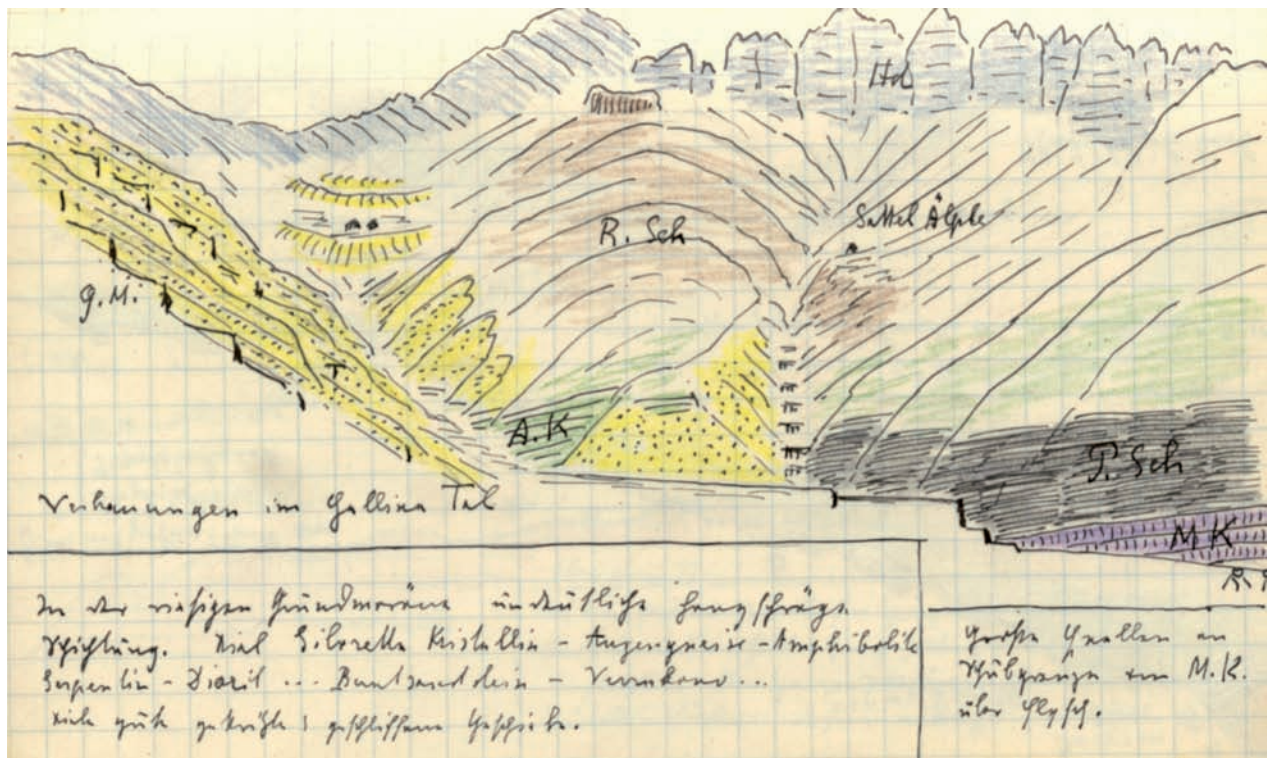 Hd
Sattel Älple
R. Sch
G. M.
A. K
P. Sch
M K
Verbauungen im Gallina Tal
In der riesigen Grundmoräne undeutliche hangschräge
Schichtung. Viel Silvretta Kristallin - Augengneise - Amphibolite
Serpentin - Diorit ... Buntsandstein - Verrukano ...
viele gute gekritzte geschliffene Geschiebe.
Große Quellen an
Schubgrenze von M.K.
über Flysch.